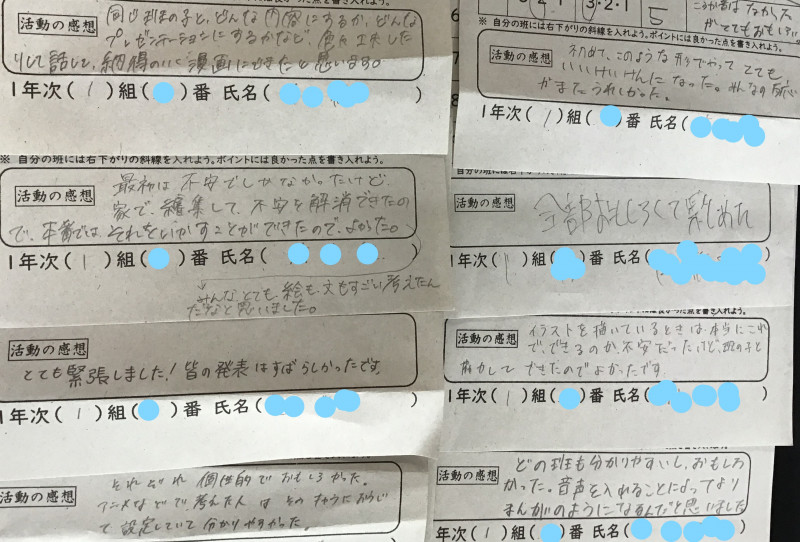 活動の感想
同じ班の子と、どんな内容にするか、どんな
プレゼンテーションにするかなど、
りして話して、納得のいく漫画にできたと思います。
1年次(1)組( )番 氏名( )
※ 自分の班には右下がりの斜線を入れよう。ポイントには良かった点を書き入れよう。
活動の感想
最初は不安でしかなかったけど、
家で、編集して、不安を解消できたの
で、本番では、それをいかすことができたので、よかった。
1年次(1)組( )番 氏名( )
みんなとても絵も文もすごい考えたん
だなと思いました。
活動の感想
とても緊張しました!皆の発表はすばらしかったです。
1年次(1)組( )番 氏名( )
活動の感想
それぞれ個性的でおもしろかった。
アニメなどで考えた人はそのキャラにおうじ
て設定していて分かりやすかった。
3・2・1
5
※ 自分の班には右下がりの斜線を入れよう。ポイントには良かった点を書き入れよう。
活動の感想
初めて、このような形でやってとても
いいけいけんになった。みんなの反応
がまたうれしかった。
1年次(1)組( )番 氏名( )
自分の班には右下がりの斜線を入れよう。ポイントには良かった点を書き入れよう。
活動の感想
全部おもしろくて楽しめた
1年次(1)組( )番 氏名( )
活動の感想
イラストを描いているときは本当にこれ
で、できるのか、不安だったけど、班の子と
協力してできたのでよかったです
1年次(1)組( )番 氏名( )
活動の感想
どの班も分かりやすいし、おもしろ
かった。音声を入れることによってより
まんがのようになるんだと思いました
年次(1)組( )番 氏名( )